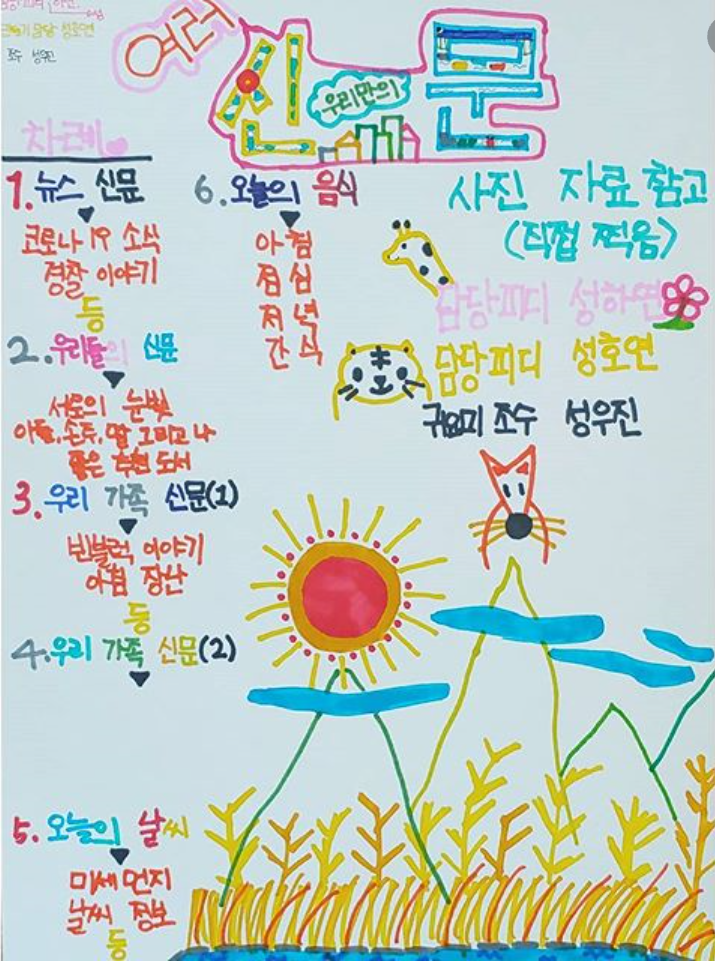 조수 성우진
여러
신문
우리만의
차례
1. 뉴스 신문
코로나 19 소식
경찰 이야기
등
2. 우리들의 신문
서로의 눈빛
아들, 손주, 딸 그리고 나
좋은 추천 도서
3. 우리 가족 신문(1)
빈블럭 이야기
아침 장난
등
4. 우리 가족 신문(2)
5. 오늘의 날씨
미세먼지
날씨 정보
등
6. 오늘의 음식
아침
점심
저녁
간식
사진 자료 참고
(직접 찍음)
담당피디 성하연
담당피디 성호연
귀요미 조수 성우진